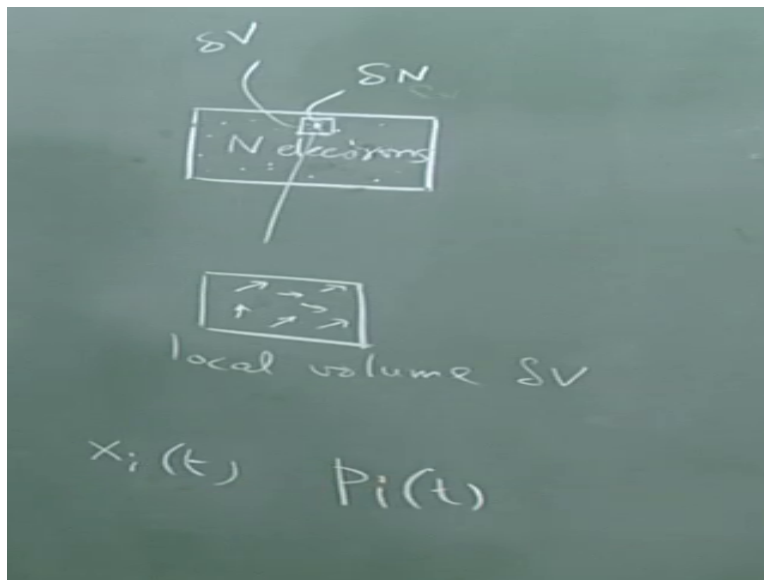 δV
δN
N decoions
local volume δV
xᵢ(t) pᵢ(t)